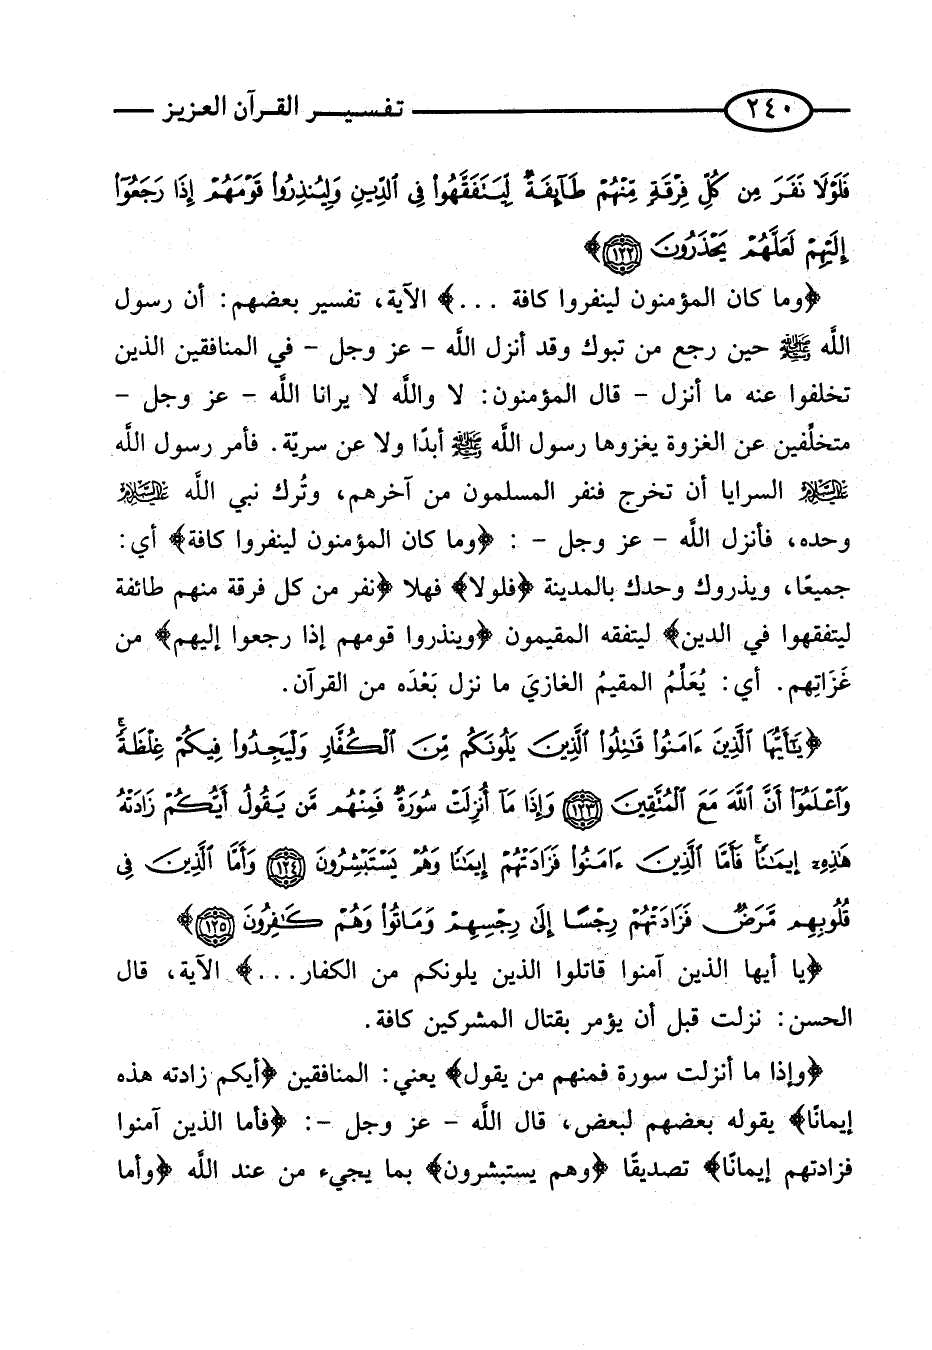 ٢٤٠ تفسير القرآن العزيز
فَلَوْلَا نَفَرَ مِن كُلِّ فِرْقَةٍ مِّنْهُمْ طَآئِفَةٌ لِّيَتَفَقَّهُوا۟ فِى ٱلدِّينِ وَلِيُنذِرُوا۟ قَوْمَهُمْ إِذَا رَجَعُوٓا۟
إِلَيْهِمْ لَعَلَّهُمْ يَحْذَرُونَ ﴿١٢٢﴾ ﴾
﴿وما كان المؤمنون لينفروا كافة ...﴾ الآية، تفسير بعضهم: أن رسول
اللَّه ﷺ حين رجع من تبوك وقد أنزل اللَّه - عز وجل - في المنافقين الذين
تخلفوا عنه ما أنزل - قال المؤمنون: لا واللَّه لا يرانا اللَّه - عز وجل -
متخلِّفين عن الغزوة يغزوها رسول اللَّه ﷺ أبدًا ولا عن سريّة. فأمر رسول اللَّه
عليه السلام السرايا أن تخرج فنفر المسلمون من آخرهم، وتُرك نبي اللَّه عليه السلام
وحده، فأنزل اللَّه - عز وجل - : ﴿وما كان المؤمنون لينفروا كافة﴾ أي:
جميعًا، ويذروك وحدك بالمدينة ﴿فلولا﴾ فهلا ﴿نفر من كل فرقة منهم طائفة
ليتفقهوا في الدين﴾ ليتفقه المقيمون ﴿وينذروا قومهم إذا رجعوا إليهم﴾ من
غَزَاتِهم. أي: يُعَلِّمُ المقيمُ الغازيَ ما نزل بَعْدَه من القرآن.
﴿يَٰٓأَيُّهَا ٱلَّذِينَ ءَامَنُوا۟ قَٰتِلُوا۟ ٱلَّذِينَ يَلُونَكُم مِّنَ ٱلْكُفَّارِ وَلْيَجِدُوا۟ فِيكُمْ غِلْظَةً ۚ
وَٱعْلَمُوٓا۟ أَنَّ ٱللَّهَ مَعَ ٱلْمُتَّقِينَ ﴿١٢٣﴾ وَإِذَا مَآ أُنزِلَتْ سُورَةٌ فَمِنْهُم مَّن يَقُولُ أَيُّكُمْ زَادَتْهُ
هَٰذِهِۦٓ إِيمَٰنًا ۚ فَأَمَّا ٱلَّذِينَ ءَامَنُوا۟ فَزَادَتْهُمْ إِيمَٰنًا وَهُمْ يَسْتَبْشِرُونَ ﴿١٢٤﴾ وَأَمَّا ٱلَّذِينَ فِى
قُلُوبِهِم مَّرَضٌ فَزَادَتْهُمْ رِجْسًا إِلَىٰ رِجْسِهِمْ وَمَاتُوا۟ وَهُمْ كَٰفِرُونَ ﴿١٢٥﴾ ﴾
﴿يا أيها الذين آمنوا قاتلوا الذين يلونكم من الكفار...﴾ الآية، قال
الحسن: نزلت قبل أن يؤمر بقتال المشركين كافة.
﴿وإذا ما أنزلت سورة فمنهم من يقول﴾ يعني: المنافقين ﴿أيكم زادته هذه
إيمانًا﴾ يقوله بعضهم لبعض، قال اللَّه - عز وجل -: ﴿فأما الذين آمنوا
فزادتهم إيمانًا﴾ تصديقًا ﴿وهم يستبشرون﴾ بما يجيء من عند اللَّه ﴿وأما